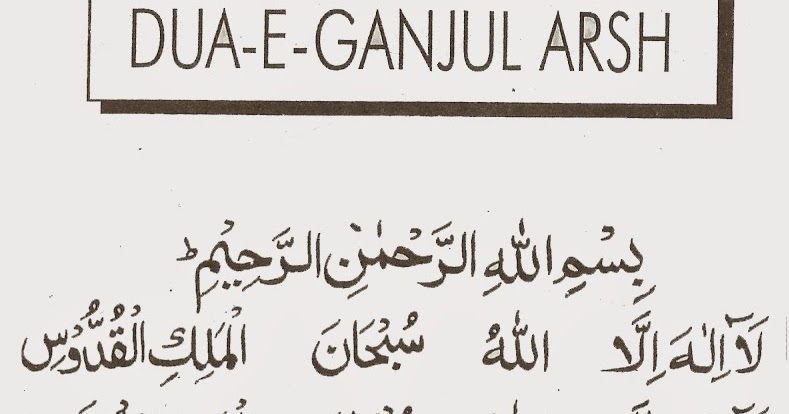 DUA-E-GANJUL ARSH
بِسْمِ اللهِ الرَّحْمٰنِ الرَّحِيْمِ ط
لَآ اِلٰهَ اِلَّا اللهُ سُبْحَانَ الْمَلِكِ الْقُدُّوْسِ